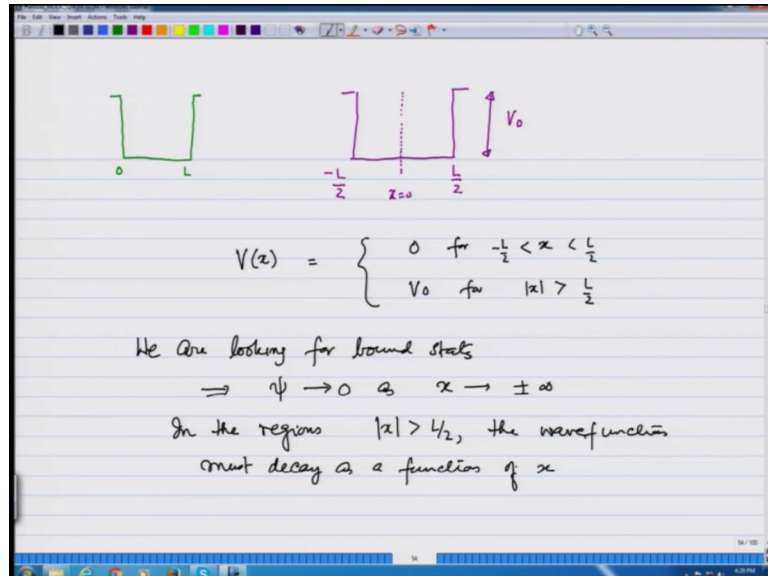 File Edit View Insert Actions Tools Help
V0
0 L
-L/2 x=0 L/2
V(x) = { 0 for -L/2 < x < L/2
V0 for |x| > L/2
We are looking for bound stats
⇒ ψ → 0 as x → ± ∞
In the regions |x| > L/2, the wavefunction
must decay as a function of x
54/100
54
4:29 PM